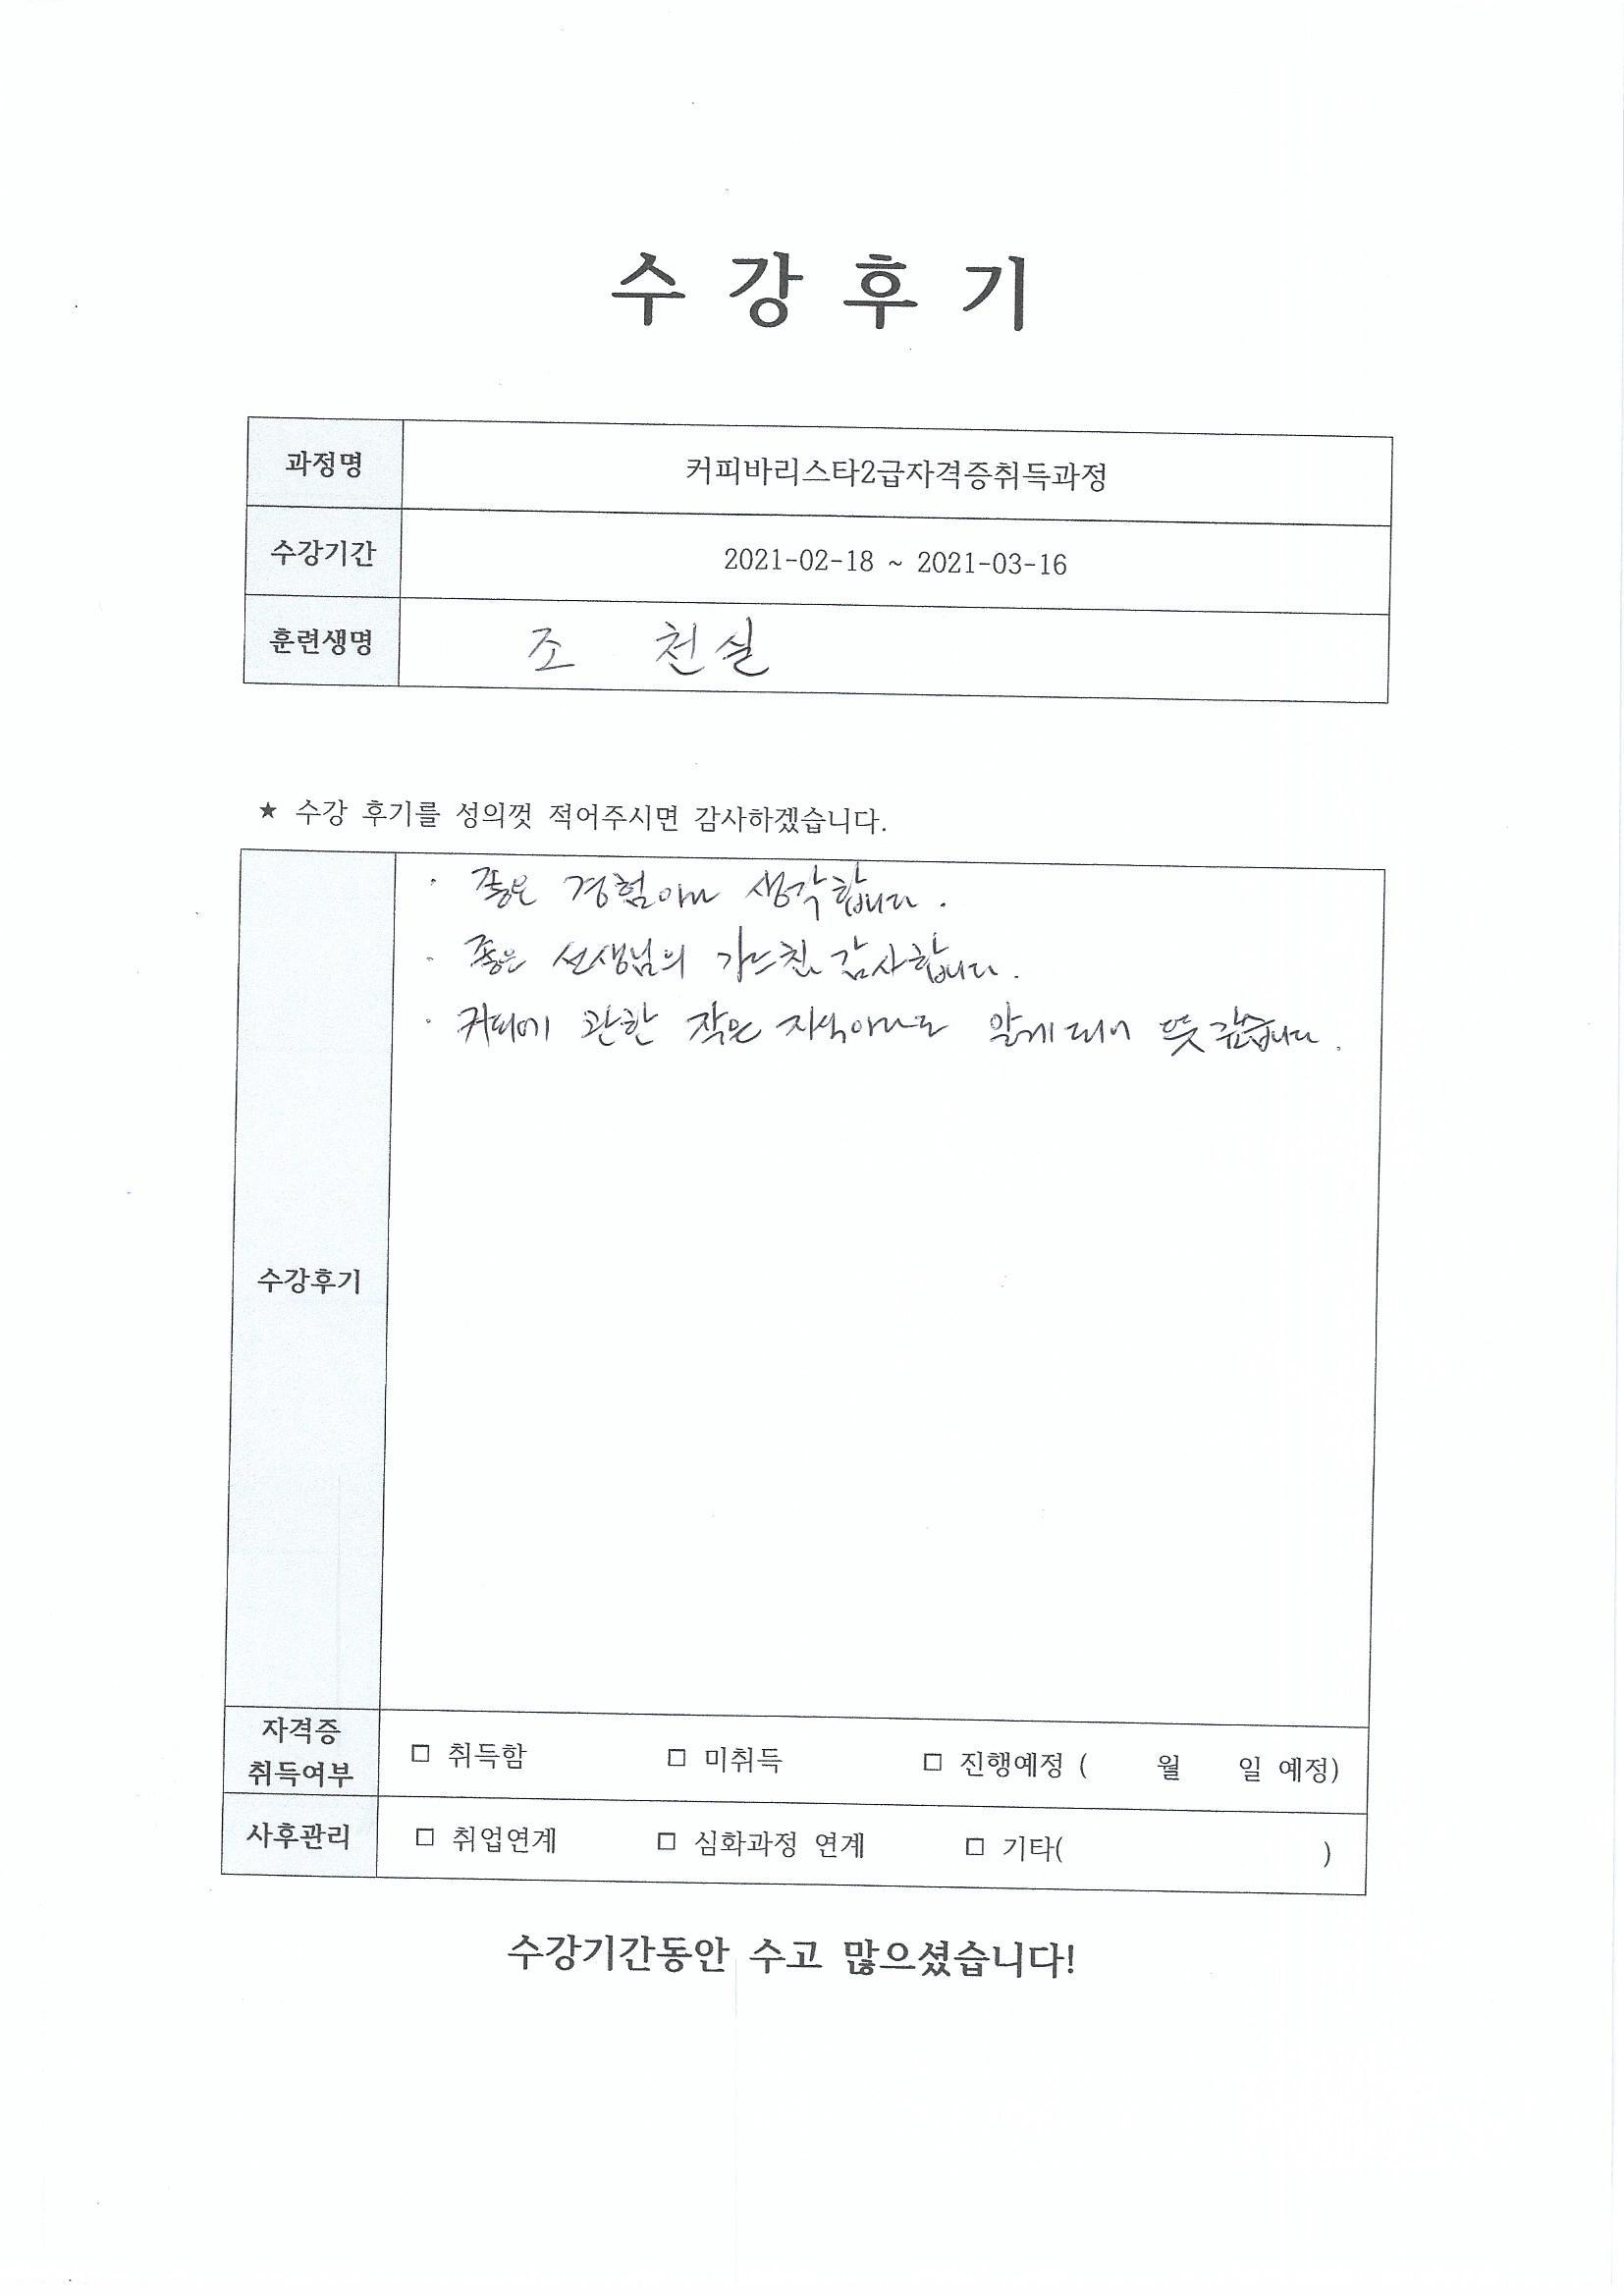 수 강 후 기
과정명 커피바리스타2급자격증취득과정
수강기간 2021-02-18 ~ 2021-03-16
훈련생명 조 천실
★ 수강 후기를 성의껏 적어주시면 감사하겠습니다.
· 좋은 경험이라 생각합니다.
· 좋은 선생님의 가르침 감사합니다.
· 커피에 관한 작은 지식이나마 알게 되어 뜻 깊습니다.
수강후기
자격증
취득여부 □ 취득함 □ 미취득 □ 진행예정 ( 월 일 예정)
사후관리 □ 취업연계 □ 심화과정 연계 □ 기타( )
수강기간동안 수고 많으셨습니다!